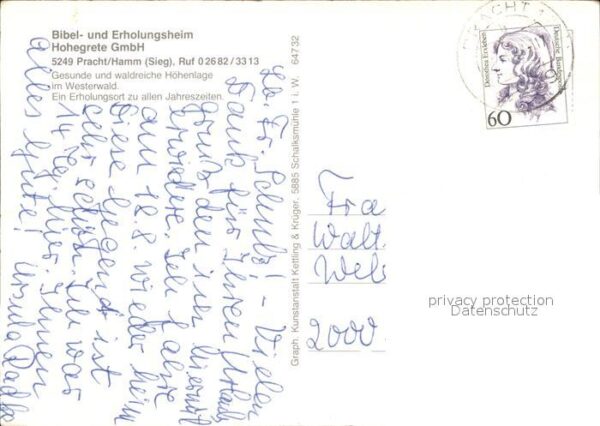 Bibel- und Erholungsheim
Hohegrete GmbH
5249 Pracht/Hamm (Sieg), Ruf 0 26 82 / 33 13
Gesunde und waldreiche Höhenlage
im Westerwald.
Ein Erholungsort zu allen Jahreszeiten.
Lb. Fr. Schulz! – Vielen
Dank für Ihren Urlaubs
gruß den ich hiermit
erwidere. Ich fahre
am 18.8. wieder heim
Diese Gegend ist
sehr schön. Ich war
14 Tg. hier. Ihnen
alles Gute! Ursula
Graph. Kunstanstalt Kettling & Krüger, 5885 Schalksmühle 1 i. W. 64732
PRACHT
Dorothea Erxleben
Deutsche Bundespost
60
Fra
Walt
2000
privacy protection
Datenschutz